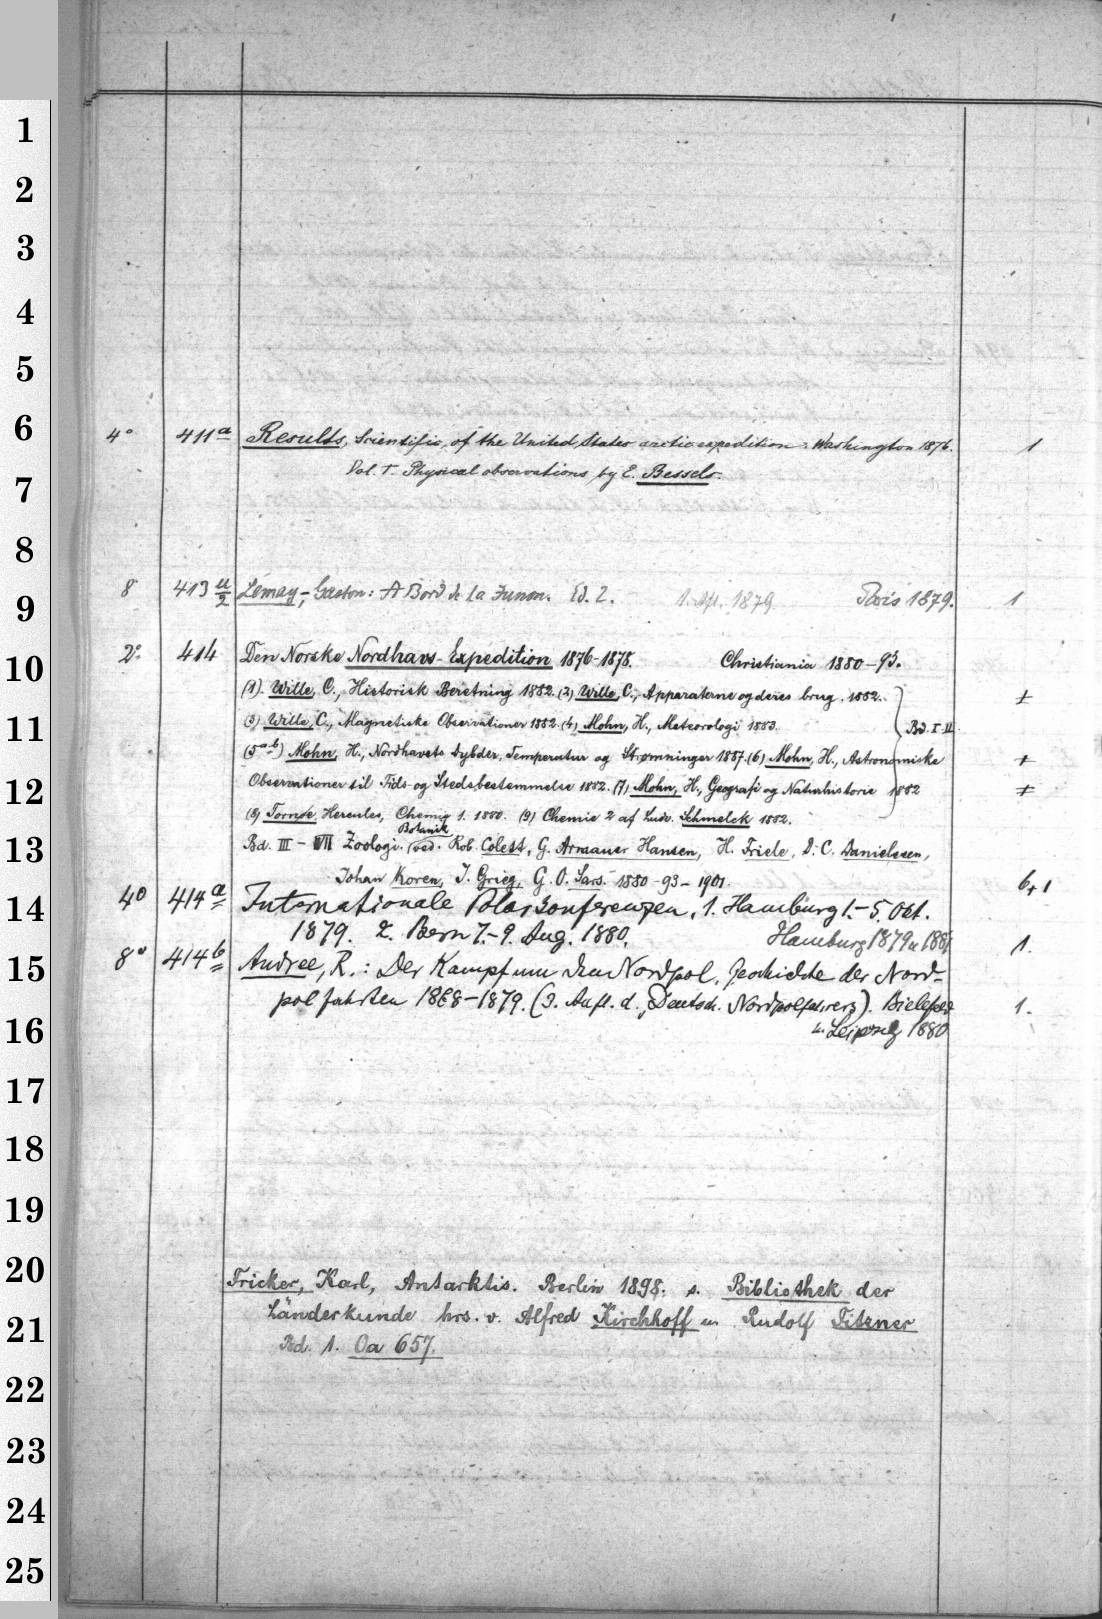 1
2
3
4
5
6
4° 411a Results, Scientific, of the United States arctic expedition. Washington 1876. 1
Vol. I. Physical observations by E. Bessels.
7
8
8 413 Lemay, Gaston: A Bord de La Junon. Ed. 2. 1879 Paris 1879. 1
9
2° 414 Den Norske Nordhavs-Expedition 1876-1878. Christiania 1880-93.
10
(1). Wille, C., Historisk Beretning 1882. (2) Wille, C., Apparaterne og deres brug. 1882. +
(3) Wille, C., Magnetiske Observationer 1882. (4) Mohn, H., Meteorologi 1883. Bd. I-II
11
(5a-b) Mohn, H., Nordhavets Dybder, Temperatur og Strømninger 1887. (6) Mohn, H., Astronomiske +
Observationer til Tids- og Stedsbestemmelse 1882. (7) Mohn, H., Geografi og Naturhistorie 1882 +
12
(8) Tornøe, Hercules, Chemi 1. 1880. (9) Chemie 2 af Ludv. Schmelck 1882.
Botanik
Bd. III - VII Zoologi. ved. Rob. Colett, G. Armauer Hansen, H. Friele, D. C. Danielssen,
13
Johan Koren, J. Grieg, G. O. Sars. 1880-93-1901. 6+1
4° 414a Internationale Polarkonferenzen, 1. Hamburg 1.-5. Okt.
14
1879. 2. Bern 7.-9. Aug. 1880. Hamburg 1879 u. 1881. 1.
8° 414b Andree, R.: Der Kampf um den Nordpol, Geschichte der Nord-
15
polfahrten 1868-1879. (3. Aufl. d. Deutsch. Nordpolfahrers). Bielefeld 1.
16
u. Leipzig 1880
17
18
19
20
Fricker, Karl, Antarktis. Berlin 1898. s. Bibliothek der
Länderkunde hrs. v. Alfred Kirchhoff u. Rudolf Fitzner
21
Bd. 1. Oa 657.
22
23
24
25